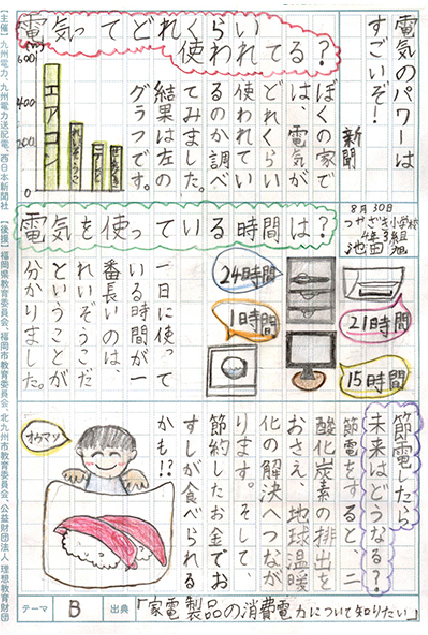 電気のパワーは
すごいぞ!
新聞
8月30日
つやざき小学校
4年3組
池田 旭
電気ってどれくらい
使われてる?
ぼくの家で
は、電気が
どれくらい
使われてい
るのか調べ
てみました。
結果は左の
グラフです。
600
400
200
0
エアコン
れいぞうこ
テレビ
電気を使っている時間は?
24時間
1日時間
21時間
15時間
一日に使って
いる時間が一
番長いのは、
れいぞうこだ
ということが
分かりました。
節電したら
未来はどうなる?
節電をすると、二
酸化炭素の排出を
おさえ、地球温暖
化の解決へつなが
ります。そして、
節約したお金でお
すしが食べられる
かも!?
オウマツ
テーマ
B
出典
「家電製品の消費電力について知りたい」
【主催】九州電力、九州電力送配電、西日本新聞社
【後援】福岡県教育委員会、福岡市教育委員会、北九州市教育委員会、公益財団法人 理想教育財団